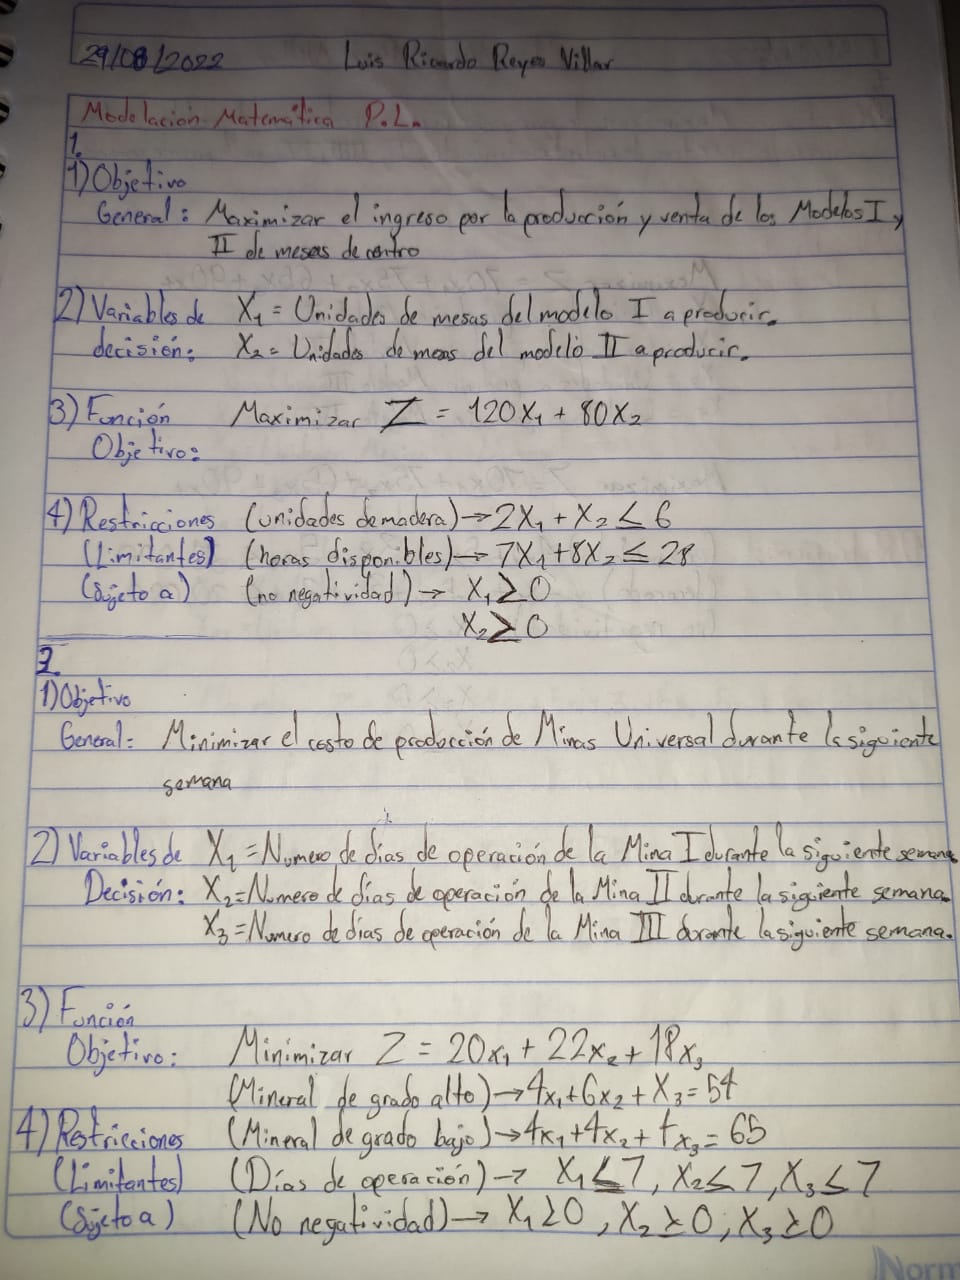 29/08/2022 Luis Ricardo Reyes Villar
Modelación Matemática P.L.
1.
1) Objetivo
General: Maximizar el ingreso por la producción y venta de los Modelos I y
II de mesas de centro
2) Variables de X₁ = Unidades de mesas del modelo I a producir.
decisión: X₂ = Unidades de mesas del modelo II a producir.
3) Función Maximizar Z = 120X₁ + 80X₂
Objetivo:
4) Restricciones (unidades de madera) → 2X₁ + X₂ ≤ 6
(Limitantes) (horas disponibles) → 7X₁ + 8X₂ ≤ 28
(Sujeto a) (no negatividad) → X₁ ≥ 0
X₂ ≥ 0
2.
1) Objetivo
General: Minimizar el costo de producción de Minas Universal durante la siguiente
semana
2) Variables de X₁ = Numero de días de operación de la Mina I durante la siguiente semana
Decisión: X₂ = Numero de días de operación de la Mina II durante la siguiente semana.
X₃ = Numero de días de operación de la Mina III durante la siguiente semana.
3) Función
Objetivo: Minimizar Z = 20x₁ + 22x₂ + 18x₃
(Mineral de grado alto) → 4x₁ + 6x₂ + X₃ = 54
4) Restricciones (Mineral de grado bajo) → 4x₁ + 4x₂ + x₃ = 65
(Limitantes) (Días de operación) → X₁ ≤ 7, X₂ ≤ 7, X₃ ≤ 7
(Sujeto a) (No negatividad) → X₁ ≥ 0, X₂ ≥ 0, X₃ ≥ 0
Norm